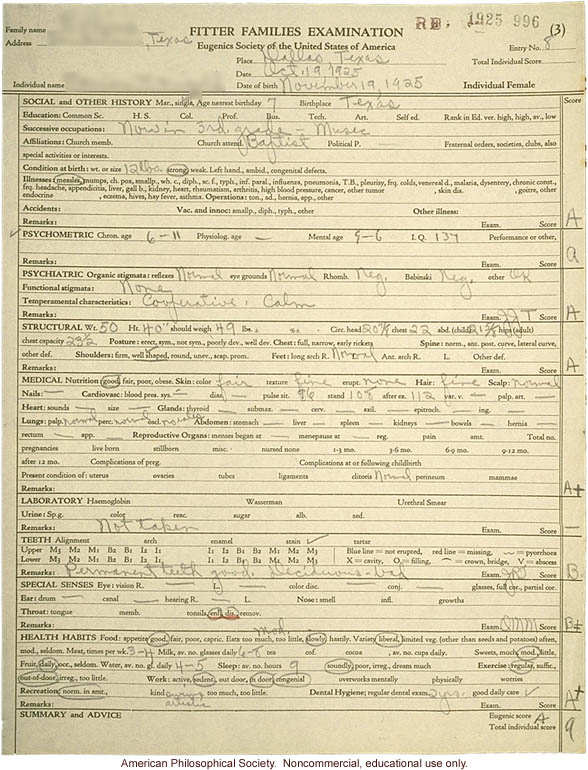 RE. 1925 996 (3)
Family name
FITTER FAMILIES EXAMINATION
Address , Texas
Eugenics Society of the United States of America
Entry No. 8
Place Dallas, Texas
Total Individual Score
Date Oct. 19, 1925
Individual name Date of birth November 19, 1925 Individual Female
SOCIAL and OTHER HISTORY Mar., single, Age nearest birthday 7 Birthplace Texas
Education: Common Sc. H. S. Col. Prof. Bus. Tech. Art. Self ed. Rank in Ed. ver. high, high, av., low
Successive occupations: Now in 3rd grade - Music
Affiliations: Church memb. Church attend. Baptist Political P. Fraternal orders, societies, clubs, also
special activities or interests.
Condition at birth: wt. or size 12 lbs. strong weak. Left hand, ambid., congenital defects.
Illnesses measles, mumps, ch. pox, smallp., wh. c., diph., sc. f., typh., inf. paral., influenza, pneumonia, T.B., pleurisy, frq. colds, venereal d., malaria, dysentery, chronic const.,
frq. headache, appendicitis, liver, gall b., kidney, heart, rheumatism, arthritis, high blood pressure, cancer, other tumor , skin dis. , goitre, other
endocrine , eczema, hives, hay fever, asthma. Operations: ton., ad., hernia, app., other
Accidents: Vac. and innoc: smallp., diph., typh., other Other illness:
Remarks: Exam. Score A
PSYCHOMETRIC Chron. age 6-11 Physiolog. age — Mental age 9-6 I.Q. 137 Performance or other,
Remarks: Exam. Score A
PSYCHIATRIC Organic stigmata: reflexes Normal eye grounds Normal Rhomb. Neg. Babinski Neg. other OK
Functional stigmata: None
Temperamental characteristics: Cooperative, Calm
Remarks: Exam. Score A
STRUCTURAL Wt. 50 Ht. 40" should weigh 49 lbs. ± %± . Circ. head 20 chest 22 abd. (child) hips (adult)
chest capacity 23½ Posture: erect, sym., not sym., poorly dev., well dev. Chest: full, narrow, early rickets Spine: norm., ant. post. curve, lateral curve,
other def. Shoulders: firm, well shaped, round, unev., scap. prom. Feet: long arch R. Normal Ant. arch R. L. Other def.
Remarks: Exam. Score A
MEDICAL Nutrition good, fair, poor, obese. Skin: color fair texture fine erupt. none Hair: fine Scalp: normal
Nails: — Cardiovasc: blood pres. sys— dias. pulse sit. 96 stand 108 after ex. 112 var. v. — palp. art. —
Heart: sounds — size — Glands: thyroid — submax. — cerv. — axil. — epitroch. — ing. —
Lungs: palp. normal perc. normal osc. no rales Abdomen: stomach — liver — spleen — kidneys — bowels — hernia —
rectum — app. — Reproductive Organs: menses began at — menopause at — reg. pain amt. Total no.
pregnancies live born stillborn misc. nursed none 1-3 mo. 3-6 mo. 6-9 mo. 9-12 mo.
after 12 mo. Complications of preg. Complications at or following childbirth
Present condition of: uterus ovaries tubes ligaments clitoris Normal perineum mammae
Remarks: Exam. Score A+
LABORATORY Haemoglobin Wasserman Urethral Smear
Urine: Sp.g. color reac. sugar alb. sed.
Remarks: Not taken Exam. Score —
TEETH Alignment arch enamel stain ✓ tartar
Upper M3 M2 M1 B2 B1 C I2 I1 I1 I2 C B1 B2 M1 M2 M3 Blue line = not erupted, red line = missing, = pyorrhoea
Lower M3 M2 M1 B2 B1 C I2 I1 I1 I2 C B1 B2 M1 M2 M3 X = cavity, O = filling, = crown, bridge, V = abscess
Remarks: Permanent teeth good. Deciduous - bad Exam. Score B
SPECIAL SENSES Eye: vision R. — L. — color disc. conj. glasses, full cor., partial cor.
Ear: drum — canal — hearing R. — L. Nose: smell infl. growths
Throat: tongue memb. tonsils, enl. dis. remov.
Remarks: Exam. Score B±
HEALTH HABITS Food: appetite good, fair, poor, capric. Eats too much, too little, mod. slowly hastily. Variety liberal, limited veg. (other than seeds and potatoes) often,
mod., seldom. Meat, times per wk. 3-4 Milk, av. no. glasses daily 6-8 tea cof. cocoa av. no. cups daily. Sweets, much, mod., little,
Fruit, daily, occ., seldom. Water, av. no. gl. daily 4-5 Sleep: av. no. hours 9 soundly, poor, irreg., dream much Exercise: regular, suffic.,
out-of-door, irreg., too little. Work: active, sedent., out-door, in door, congenial overworks mentally physically worries
Recreation: norm. in amt., kind artistic too much, too little. Dental Hygiene: regular dental exam. 2 yrs. good daily care ✓
Remarks: Exam. Score A+
SUMMARY AND ADVICE Eugenic score A
Total individual score 9
American Philosophical Society. Noncommercial, educational use only.